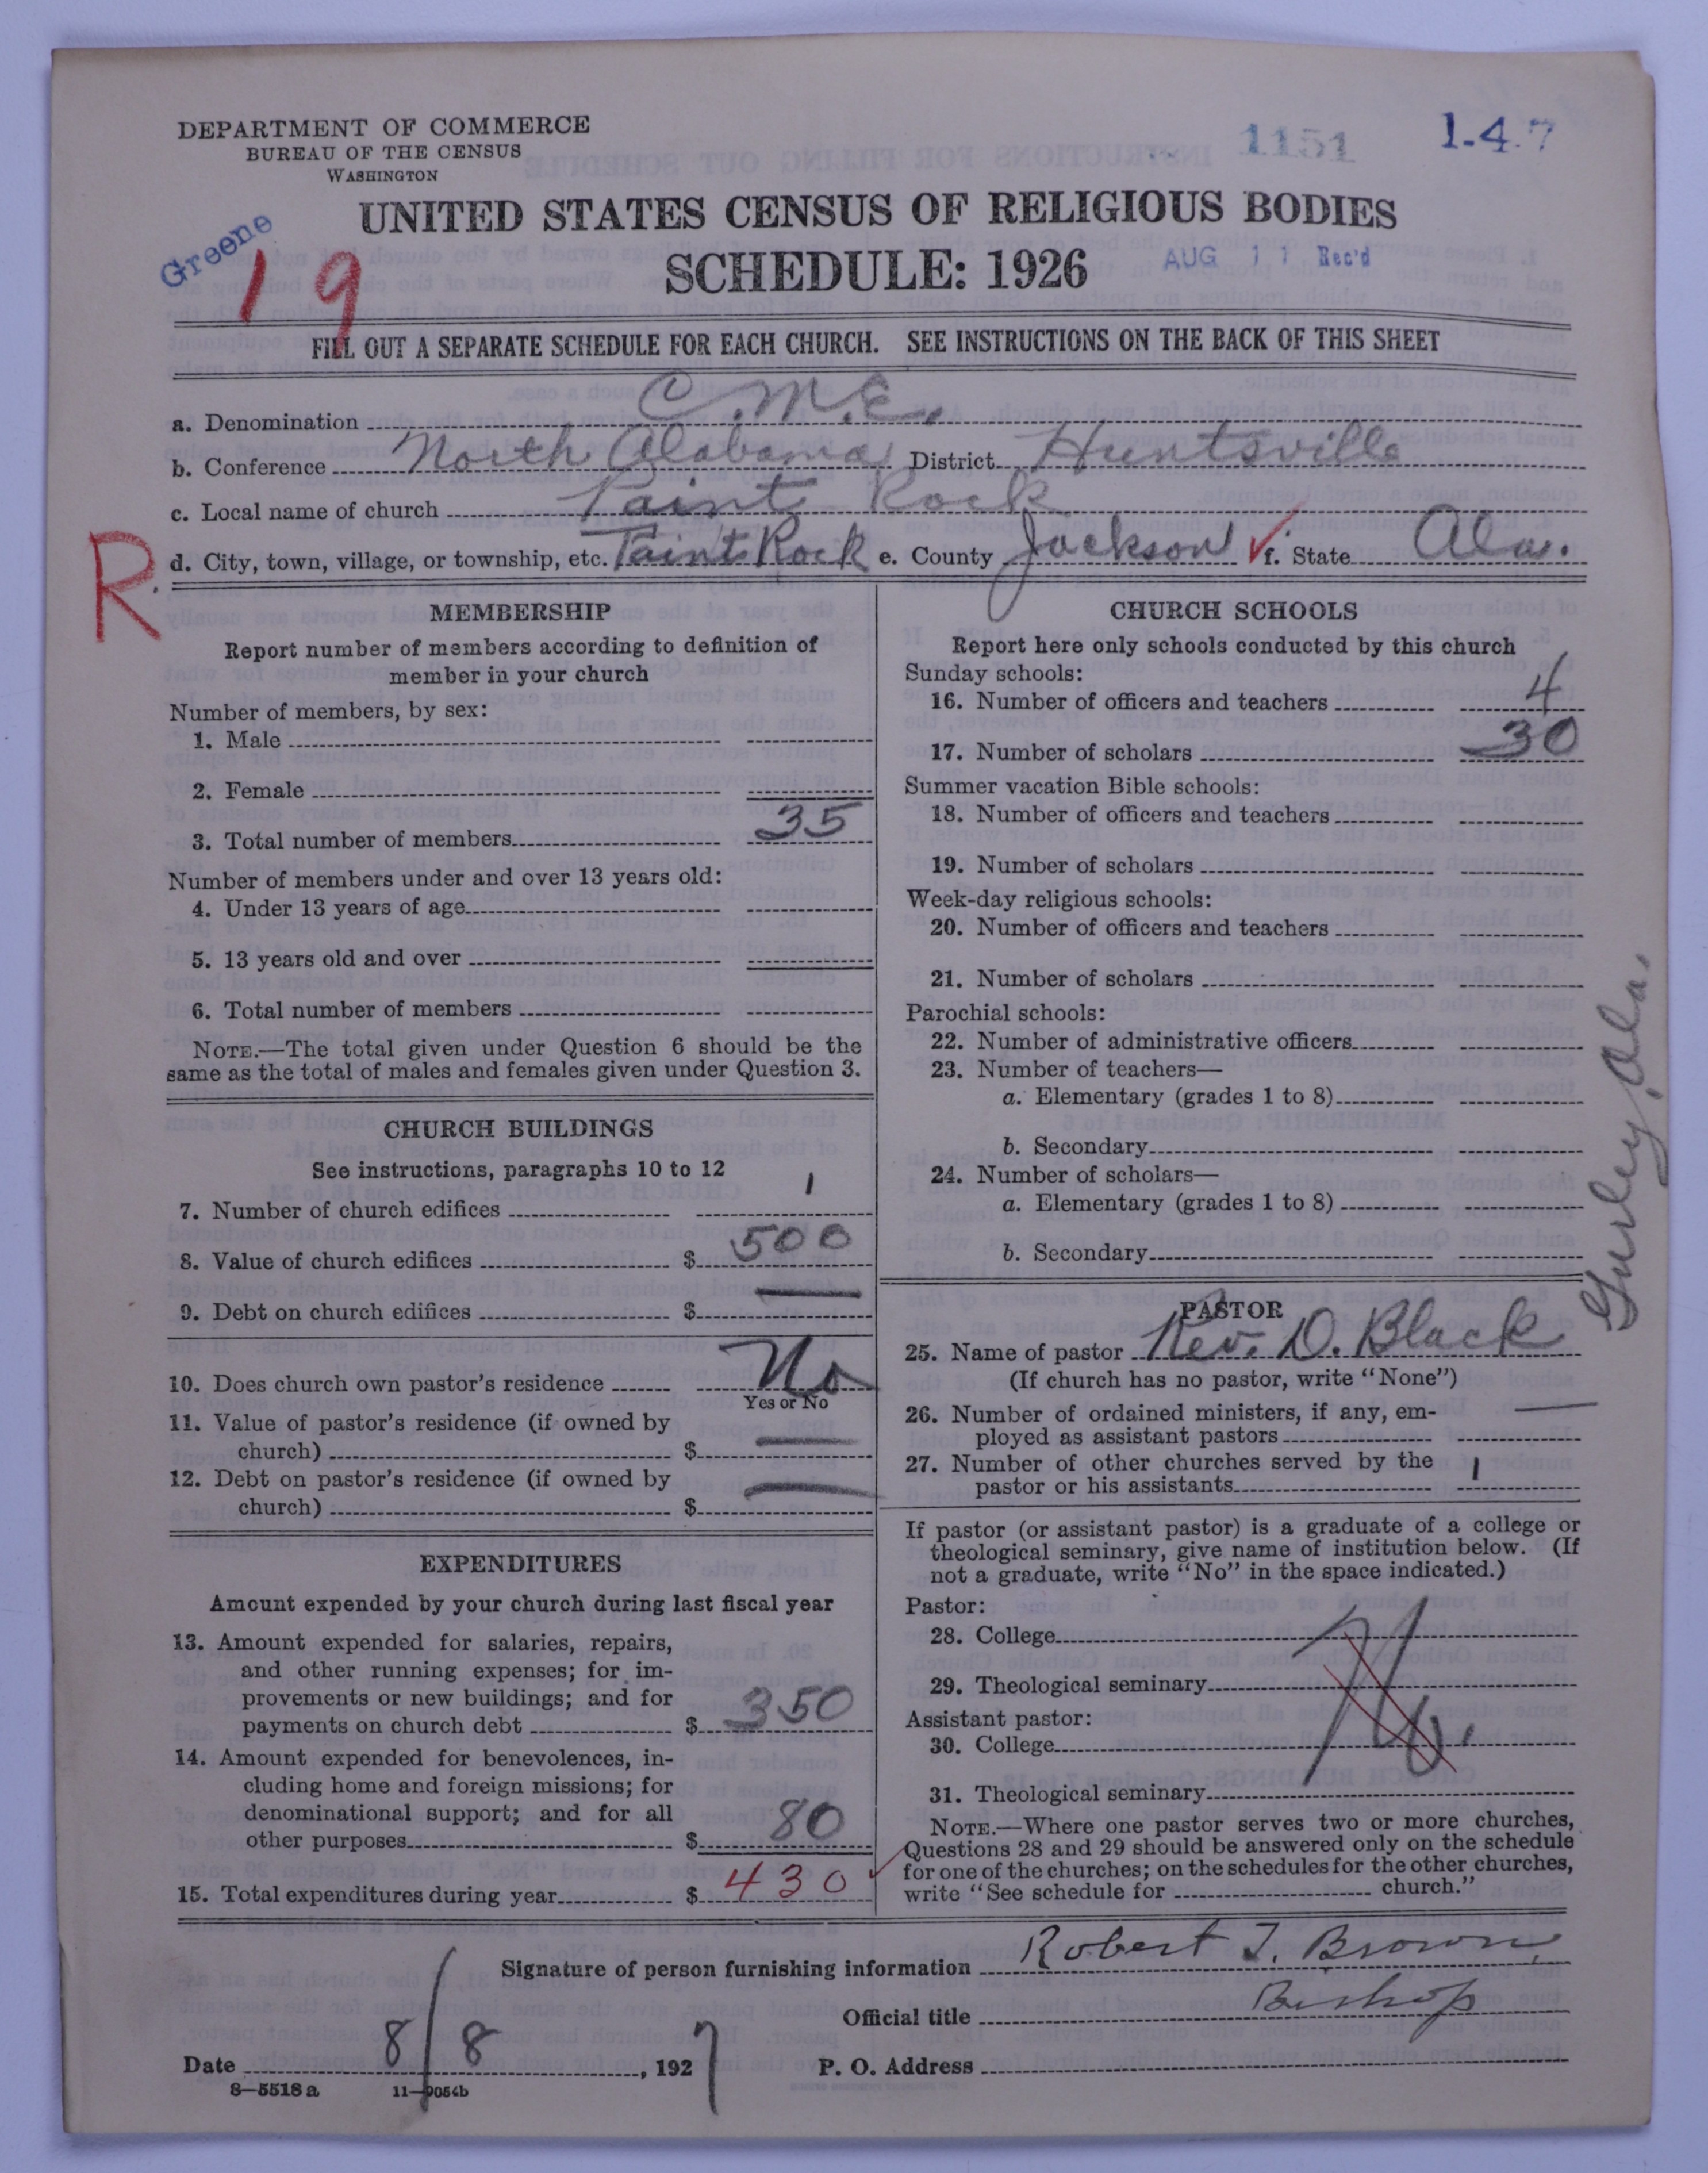 DEPARTMENT OF COMMERCE
BUREAU OF THE CENSUS
WASHINGTON
1151
1-4-7
UNITED STATES CENSUS OF RELIGIOUS BODIES
SCHEDULE: 1926
Greene
19
AUG 11 Rec'd
FILL OUT A SEPARATE SCHEDULE FOR EACH CHURCH. SEE INSTRUCTIONS ON THE BACK OF THIS SHEET
a. Denomination C.M.E.
b. Conference North Alabama District Huntsville
c. Local name of church Paint Rock
R.
d. City, town, village, or township, etc. Paint Rock e. County Jackson ✓ f. State Ala.
MEMBERSHIP
Report number of members according to definition of
member in your church
Number of members, by sex:
1. Male
2. Female
3. Total number of members 35
Number of members under and over 13 years old:
4. Under 13 years of age
5. 13 years old and over
6. Total number of members
NOTE.—The total given under Question 6 should be the
same as the total of males and females given under Question 3.
CHURCH BUILDINGS
See instructions, paragraphs 10 to 12
7. Number of church edifices 1
8. Value of church edifices $ 500
9. Debt on church edifices $ —
10. Does church own pastor's residence No
Yes or No
11. Value of pastor's residence (if owned by
church) $ —
12. Debt on pastor's residence (if owned by
church) $ —
EXPENDITURES
Amount expended by your church during last fiscal year
13. Amount expended for salaries, repairs,
and other running expenses; for im-
provements or new buildings; and for
payments on church debt $ 350
14. Amount expended for benevolences, in-
cluding home and foreign missions; for
denominational support; and for all
other purposes $ 80
15. Total expenditures during year $ 430 ✓
CHURCH SCHOOLS
Report here only schools conducted by this church
Sunday schools:
16. Number of officers and teachers 4
17. Number of scholars 30
Summer vacation Bible schools:
18. Number of officers and teachers
19. Number of scholars
Week-day religious schools:
20. Number of officers and teachers
21. Number of scholars
Parochial schools:
22. Number of administrative officers
23. Number of teachers—
a. Elementary (grades 1 to 8)
b. Secondary
24. Number of scholars—
a. Elementary (grades 1 to 8)
b. Secondary
Gurley, Ala.
PASTOR
25. Name of pastor Rev. D. Black
(If church has no pastor, write "None")
26. Number of ordained ministers, if any, em-
ployed as assistant pastors —
27. Number of other churches served by the
pastor or his assistants 1
If pastor (or assistant pastor) is a graduate of a college or
theological seminary, give name of institution below. (If
not a graduate, write "No" in the space indicated.)
Pastor:
28. College
29. Theological seminary
No.
Assistant pastor:
30. College
31. Theological seminary
NOTE.—Where one pastor serves two or more churches,
Questions 28 and 29 should be answered only on the schedule
for one of the churches; on the schedules for the other churches,
write "See schedule for church."
Signature of person furnishing information Robert T. Brown,
Official title Bishop
Date 8/8, 1927 P. O. Address
8—5518 a 11—9054b